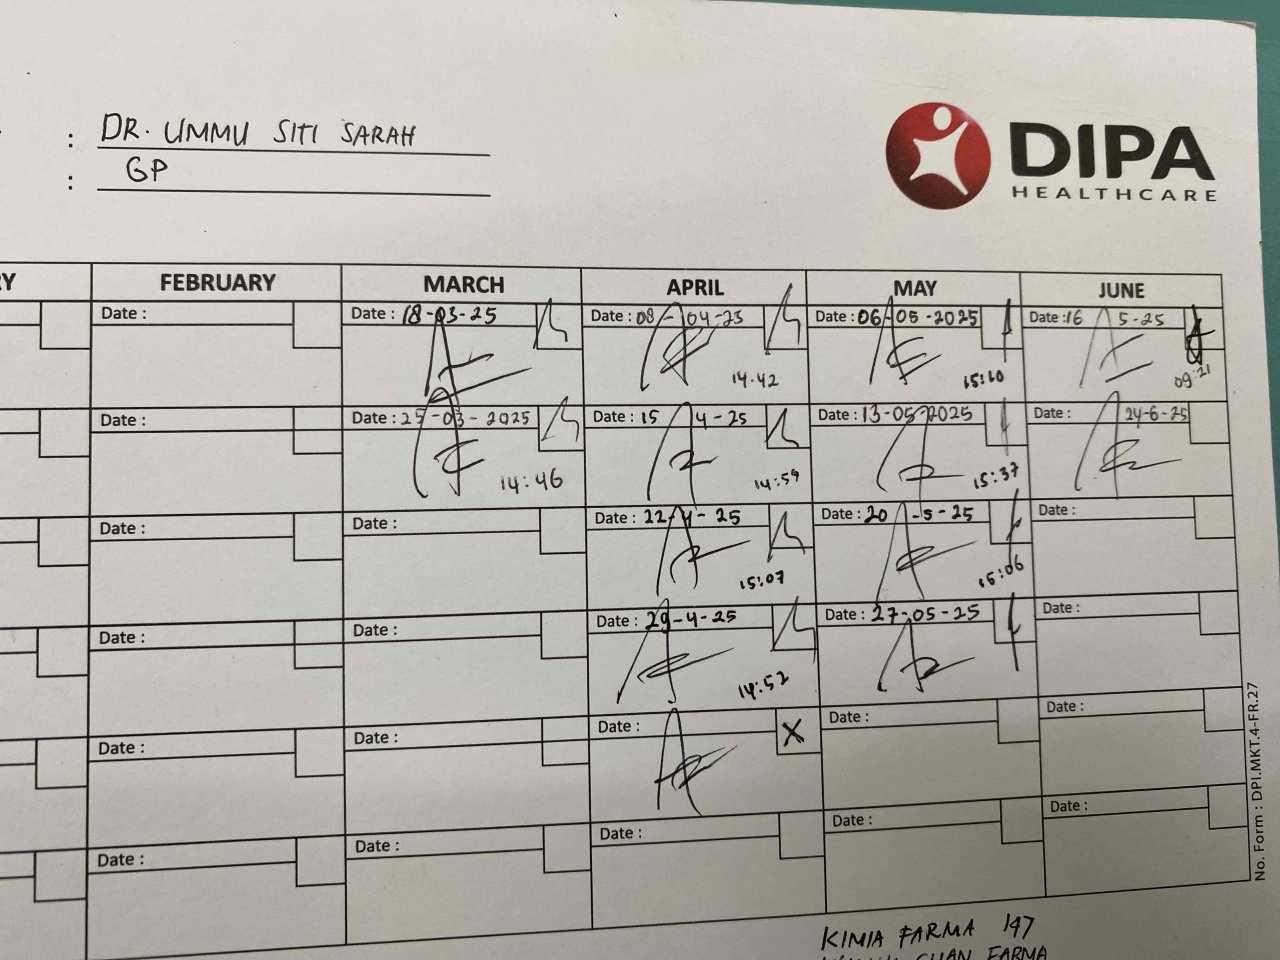 : DR. UMMU SITI SARAH
: GP
DIPA
HEALTHCARE
Y FEBRUARY MARCH APRIL MAY JUNE
Date : Date : 18-03-25 Date : 08-04-25 Date : 06-05-2025 Date : 16 5-25
14.42 15:10 09:21
Date : Date : 25-03-2025 Date : 15 4-25 Date : 13-05-2025 Date : 24-6-25
14:46 14:59 15:37
Date : Date : Date : 22-4-25 Date : 20 -5-25 Date :
15:07 15:06
Date : Date : Date : 29-4-25 Date : 27-05-25 Date :
14:52
Date : Date : Date : X Date : Date :
Date : Date : Date : Date : Date :
No. Form : DPI.MKT.4-FR.27
KIMIA FARMA 147
FARMA